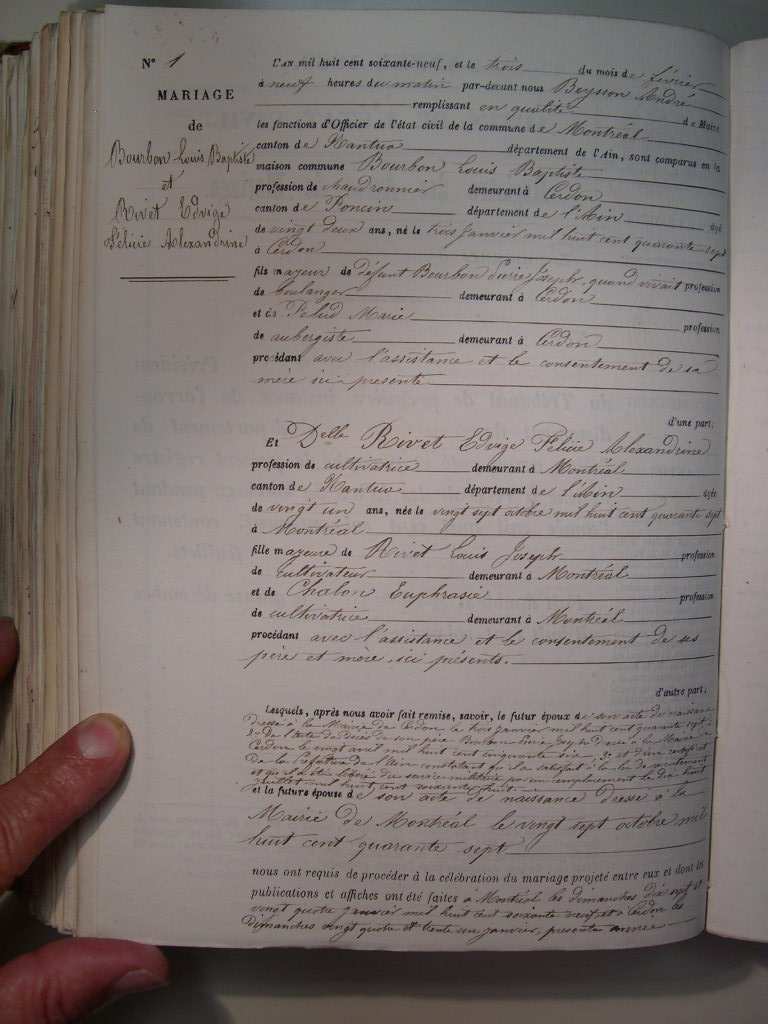 N° 1
MARIAGE
de
Bourbon Louis Baptiste
et
Rivet Edvige
Félicie Alexandrine
L'AN mil huit cent soixante-neuf, et le trois du mois de février
à neuf heures du matin par-devant nous Beysson André
remplissant en qualité de Maire
les fonctions d'Officier de l'état civil de la commune de Montréal
canton de Nantua département de l'Ain, sont comparus en la
maison commune Bourbon Louis Baptiste
profession de chaudronnier demeurant à Cerdon
canton de Poncin département de l'Ain âgé
de vingt deux ans, né le trois Janvier mil huit cent quarante sept
à Cerdon
fils majeur de défunt Bourbon Joseph, quand vivait profession
de boulanger demeurant à Cerdon
et de Marie profession
de aubergiste demeurant à Cerdon
procédant avec l'assistance et le consentement de sa
mère ici présente
d'une part;
Et Delle Rivet Edvige Félicie Alexandrine
profession de cultivatrice demeurant à Montréal
canton de Nantua département de l'Ain âgée
de vingt un ans, née le vingt sept octobre mil huit cent quarante sept
à Montréal
fille majeure de Rivet Louis Joseph profession
de cultivateur demeurant à Montréal
et de Chalon Euphrasie profession
de cultivatrice demeurant à Montréal
procédant avec l'assistance et le consentement de ses
père et mère, ici présents.
d'autre part;
Lesquels, après nous avoir fait remise, savoir, le futur époux de son acte de naissance
dressé à la Mairie de Cerdon le trois Janvier mil huit cent quarante sept,
2° De l'acte de décès de son père Bourbon Joseph dressé à la Mairie de
Cerdon le vingt avril mil huit cent cinquante six, 3° et d'un certificat
de la Préfecture de l'Ain constatant qu'il a satisfait à la loi de recrutement
et qu'il a été libéré du service militaire par un remplacement le dix huit
juillet mil huit cent soixante huit
et la future épouse de son acte de naissance dressé à la
Mairie de Montréal le vingt sept octobre mil
huit cent quarante sept
nous ont requis de procéder à la célébration du mariage projeté entre eux et dont les
publications et affiches ont été faites à Montréal les dimanches dix sept et
vingt quatre janvier mil huit cent soixante neuf et à Cerdon les
dimanches vingt quatre et trente un janvier, présente année